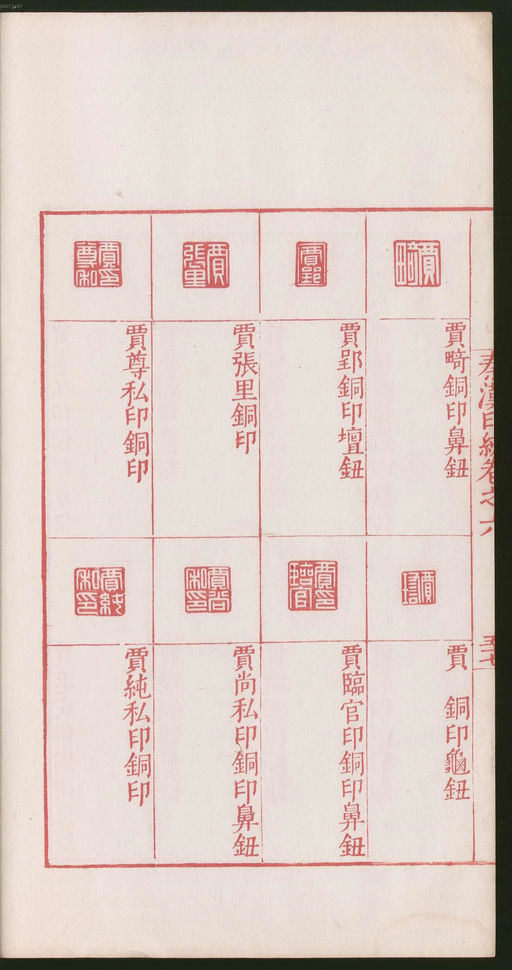 賈畸銅印鼻鈕
賈郢銅印壇鈕
賈張里銅印
賈尊私印銅印
賈 銅印龜鈕
賈臨官印銅印鼻鈕
賈尚私印銅印鼻鈕
賈純私印銅印
卷之六
五十七